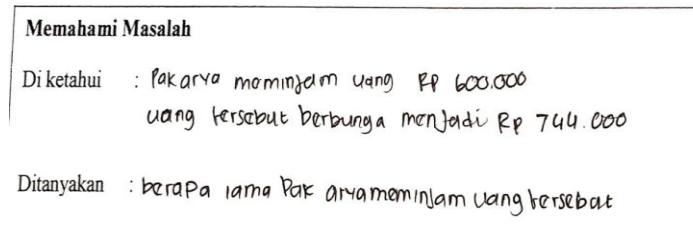 Memahami Masalah
Di ketahui : Pak arya meminjam uang Rp 600.000
uang tersebut berbunga menjadi Rp 744.000
Ditanyakan : berapa lama Pak arya meminjam uang tersebut